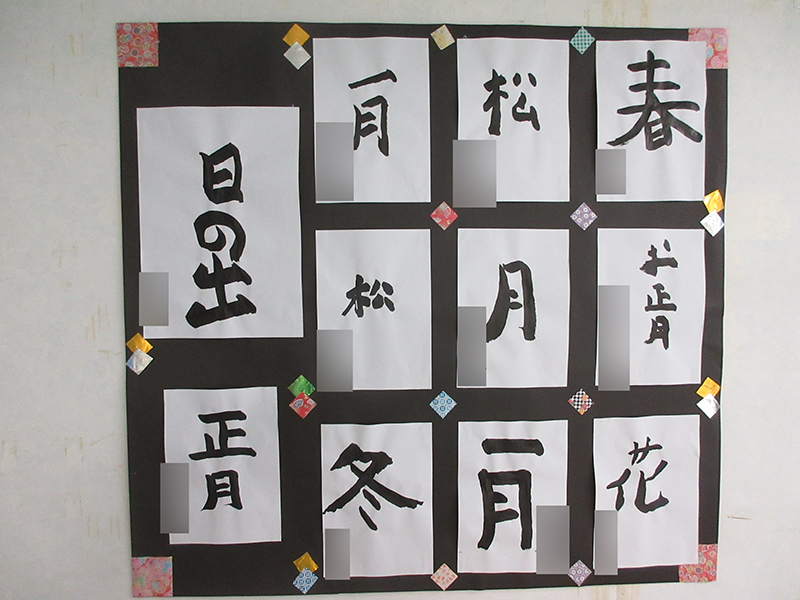 春
松
一月
お正月
月
松
花
一月
冬
日の出
正月